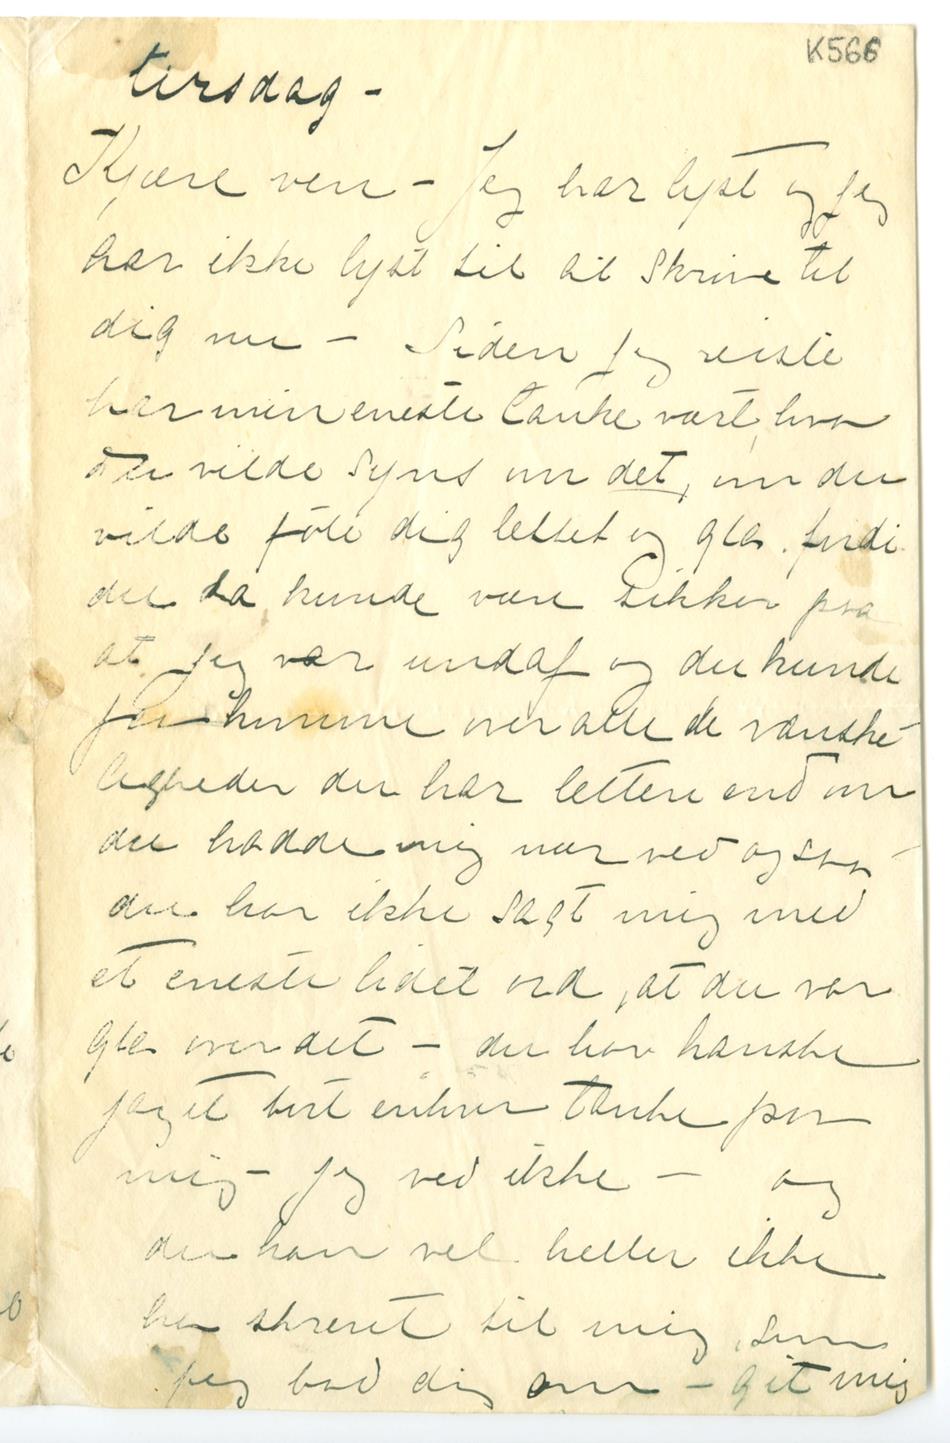 K566
tirsdag -
Kjære ven - Jeg har lyst og jeg
har ikke lyst til at skrive til
dig nu - Siden jeg reiste
har min eneste tanke vært, hva
du vilde syns om det, om du
vilde føle dig lettet og gla. fordi
du da kunde være sikker paa
at jeg var undaf og du kunde
komme over alle de vanske-
ligheder du har lettere end om
du hadde mig nær ved ogsaa -
du har ikke sagt mig med
et eneste lidet ord, at du var
gla over det - du har kanske
jaget bort enhver tanke paa
mig - jeg ved ikke - og
du har vel heller ikke
skrevet til mig, som
jeg bad dig om - git mig